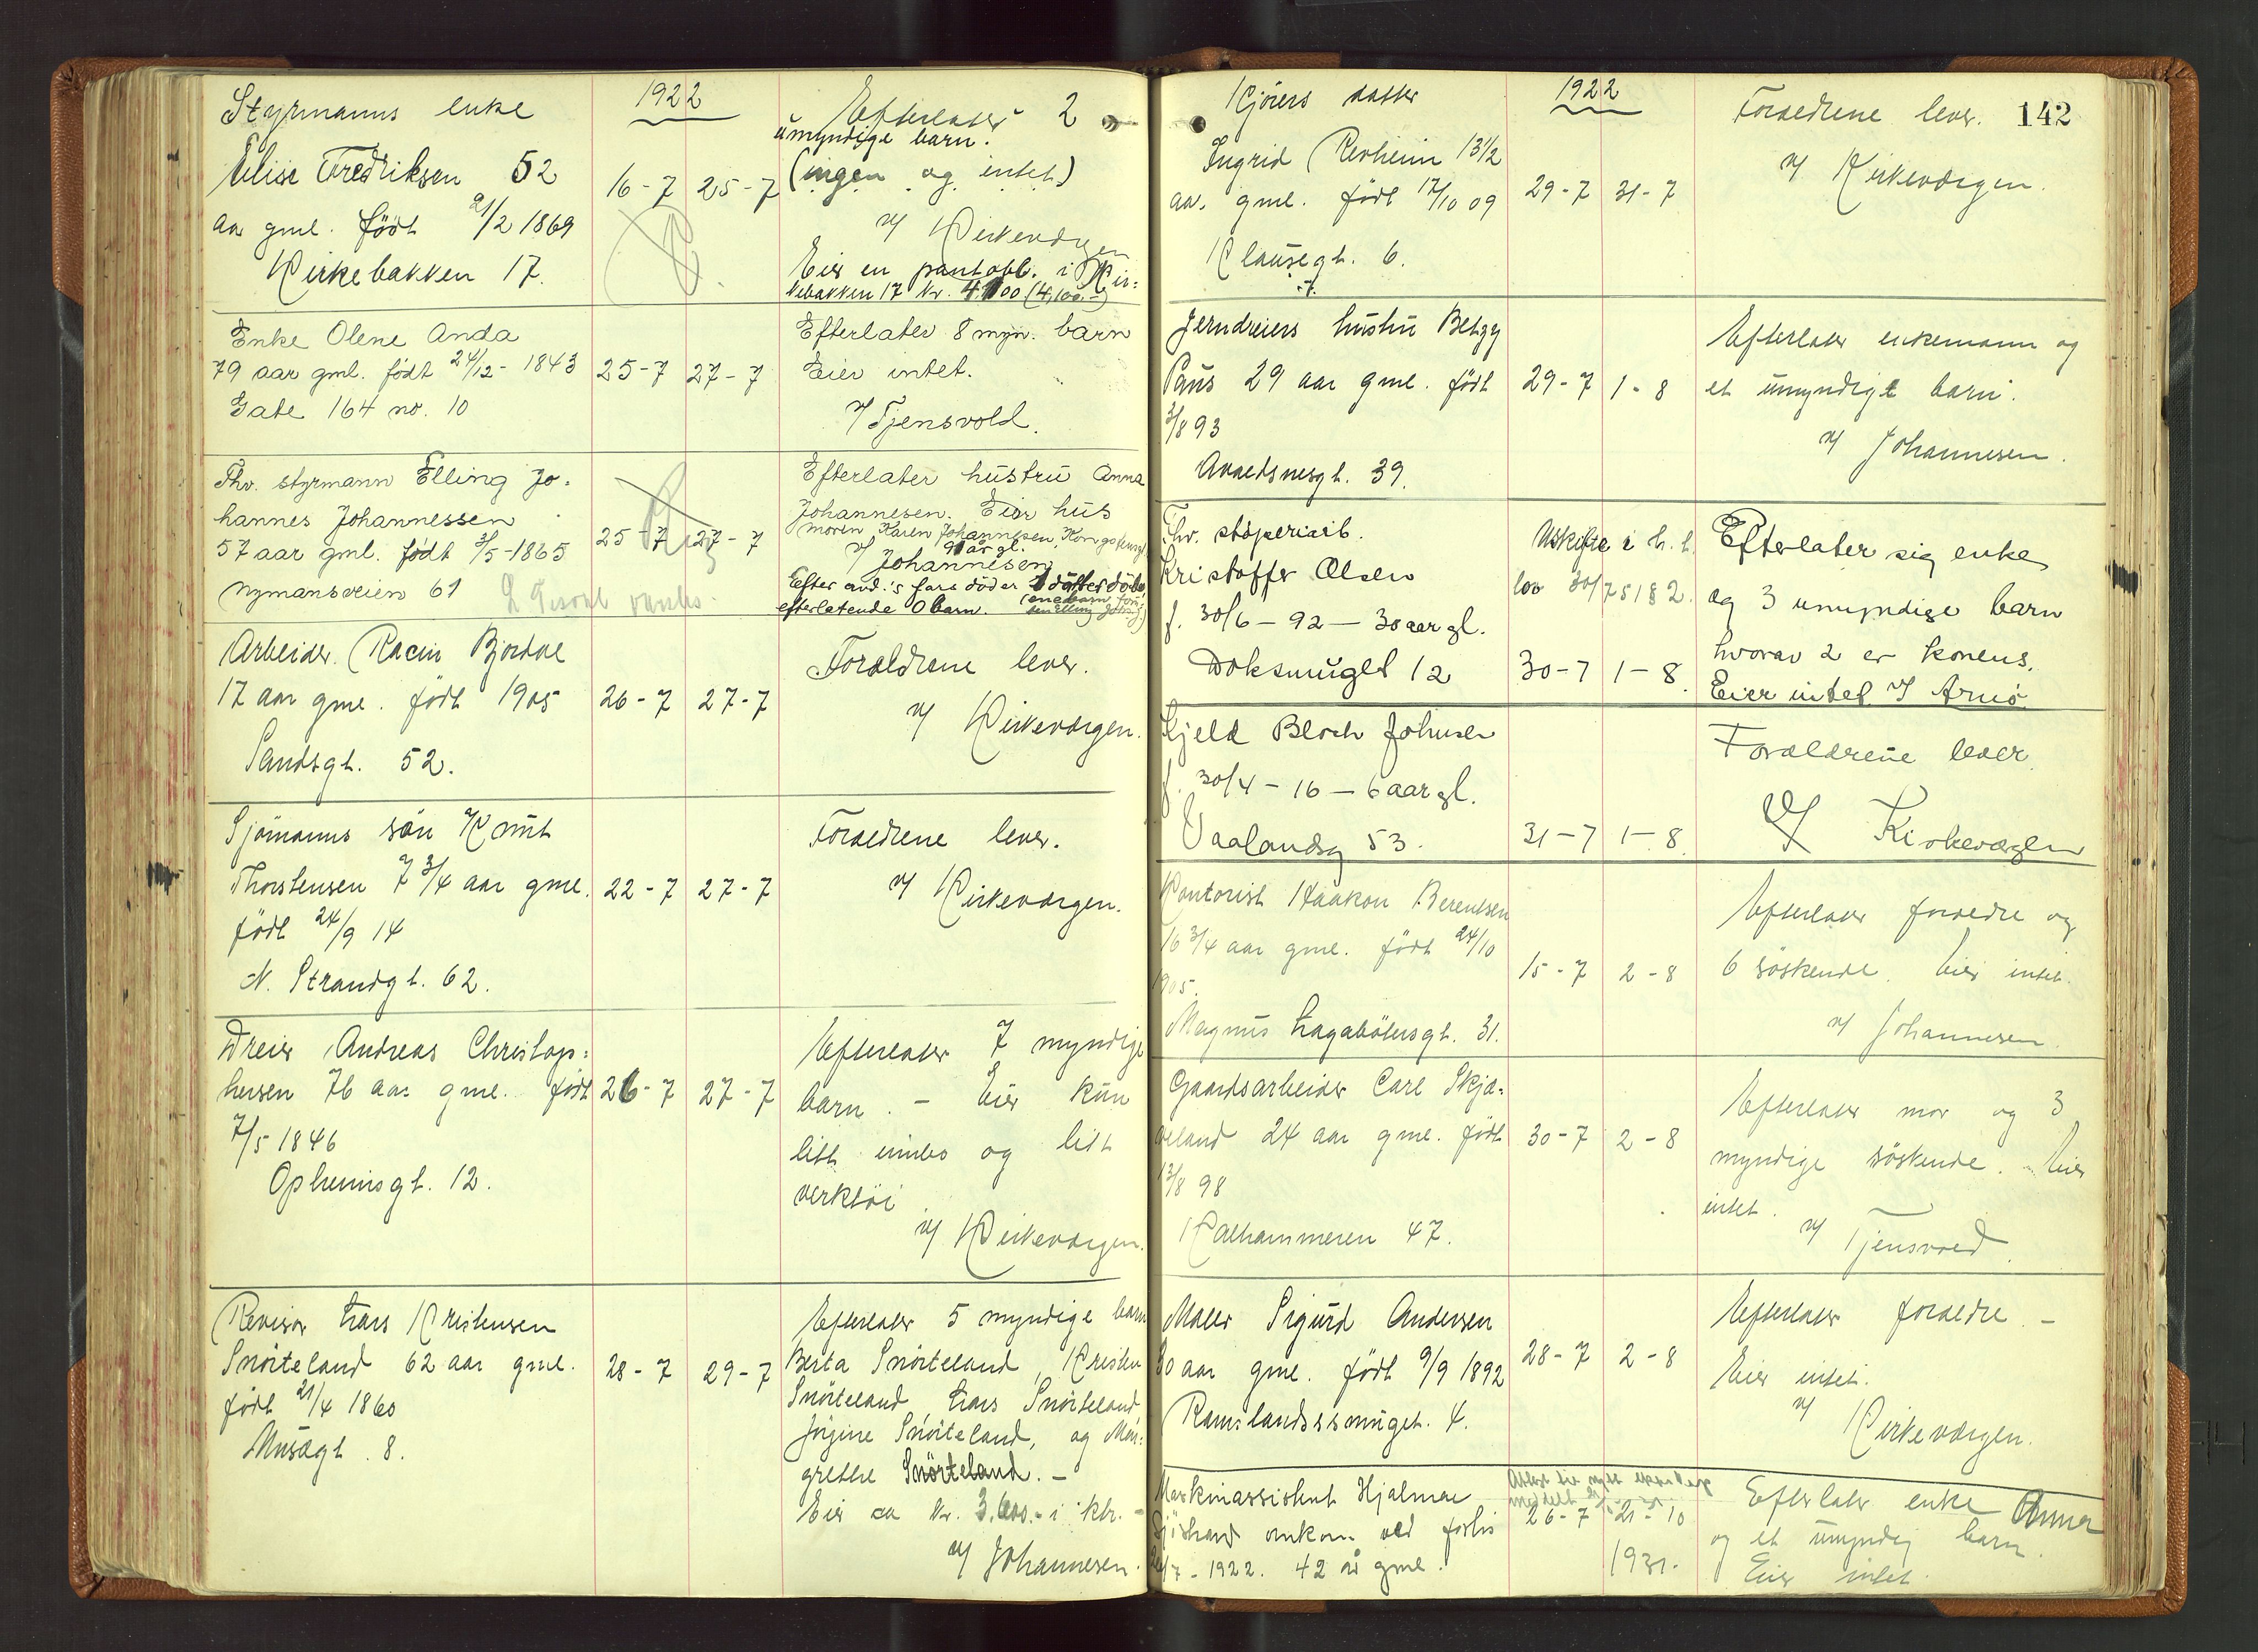 Styrmanns enke
Elise Fredriksen 52
aar gml. født 21/2 1869
Kirkebakken 17.
1922
16-7 25-7
Efterlater 2
umyndige barn.
(ingen og intet)
v/ Kirkevergen
Eier en pantobl. i Kir=
kebakken 17 kr. 4100 (4,100.-)
Enke Olene Anda
79 aar gml. født 24/12- 1843
Gate 164 no. 10
25-7 27-7
Efterlater 8 myn. barn
Eier intet.
v/ Tjensvold.
Fhv. styrmann Elling Jo=
hannes Johannessen
57 aar gml. født 3/5-1865
Nymansveien 61
25-7 27-7
Efterlater hustru Anna
Johannesen. Eier hus
moren Karen Johannesen,
91 år gl.
v/ Johannesen
Efter avd.'s fars död er
efterlatende 0 barn.
Arbeider Racin Bjordal
17 aar gml. født 1905
Sandsgt. 52.
26-7 27-7
Foraldrene lever.
v/ Kirkevergen.
Sjömanns sön Knut
Thorstensen 7 3/4 aar gml.
født 24/9 14
N. Strandgt. 62.
22-7 27-7
Foraldrene lever.
v/ Kirkevergen.
Dreier Andreas Christop=
hersen 76 aar gml. født
7/5 1846
Opheimsgt. 12.
26-7 27-7
Efterlater 7 myndige
barn. - Eier kun
litt innbo og litt
verktöi.
v/ Kirkevergen.
Revisor Lars Kristensen
Snörteland 62 aar gml.
født 21/4 1860
Musægt. 8.
28-7 29-7
Efterlater 5 myndige barn
Berta Snörteland, Kristen
Snörteland, Lars Snörteland
Jörgine Snörteland, og Mar=
grethe Snörteland. -
Eier ca kr. 3.600.- i kbr. -
v/ Johannesen.
142
Kjörers datter
Ingrid Revheim 13 1/2
aar gml. født 17/10 09
Clausegt. 6.
1922
29-7 31-7
Foraldrene lever.
v/ Kirkevergen.
Jerndreiers hustru Betzy
Paus 29 aar gml. født
3/8 93
Avaldsnesgt. 39.
29-7 1-8
Efterlater enkemann og
et umyndigt barn.
v/ Johannesen.
Fhv. støperiarb.
Kristoffer Olsen
f. 30/6 - 92 - 30 aar gl.
Doksmuget 12
Uskifte i h. t.
lov 30/7 5182.
30-7 1-8.
Efterlater sig enke
og 3 umyndige barn
hvorav 2 er konens.
Eier intet v/ Arnø
Kjeld Bloch Johnsen
f. 30/4 - 16 - 6 aar gl.
Vaalandsg 53.
31-7 1-8.
Foraldrene lever.
v/ Kirkevergen
Kontorist Haakon Berentsen
16 3/4 aar gml. født 24/10
1905.
Magnus Lagabötersgt. 31.
15-7 2-8
Efterlater foraldre og
6 söskende. Eier intet.
v/ Johannesen.
Gaardsarbeider Carl Skjæ=
veland 24 aar gml. født
13/8 98
Kalhammeren 47.
30-7 2-8
Efterlater mor og 3
myndige söskende. - Eier
intet.
v/ Tjensvold.
Maler Sigurd Andersen
30 aar gml. født 9/9 1892
Ramslandssmuget. 4.
28-7 2-8
Efterlater foraldre. -
Eier intet.
v/ Kirkevergen.
Maskinassistent Hjalmar
omkom ved forlis
/7 - 1922. 42 år gml.
26-7 21-10
1931.
Efterlater enke Anna
og et umyndig barn.
Eier intet.